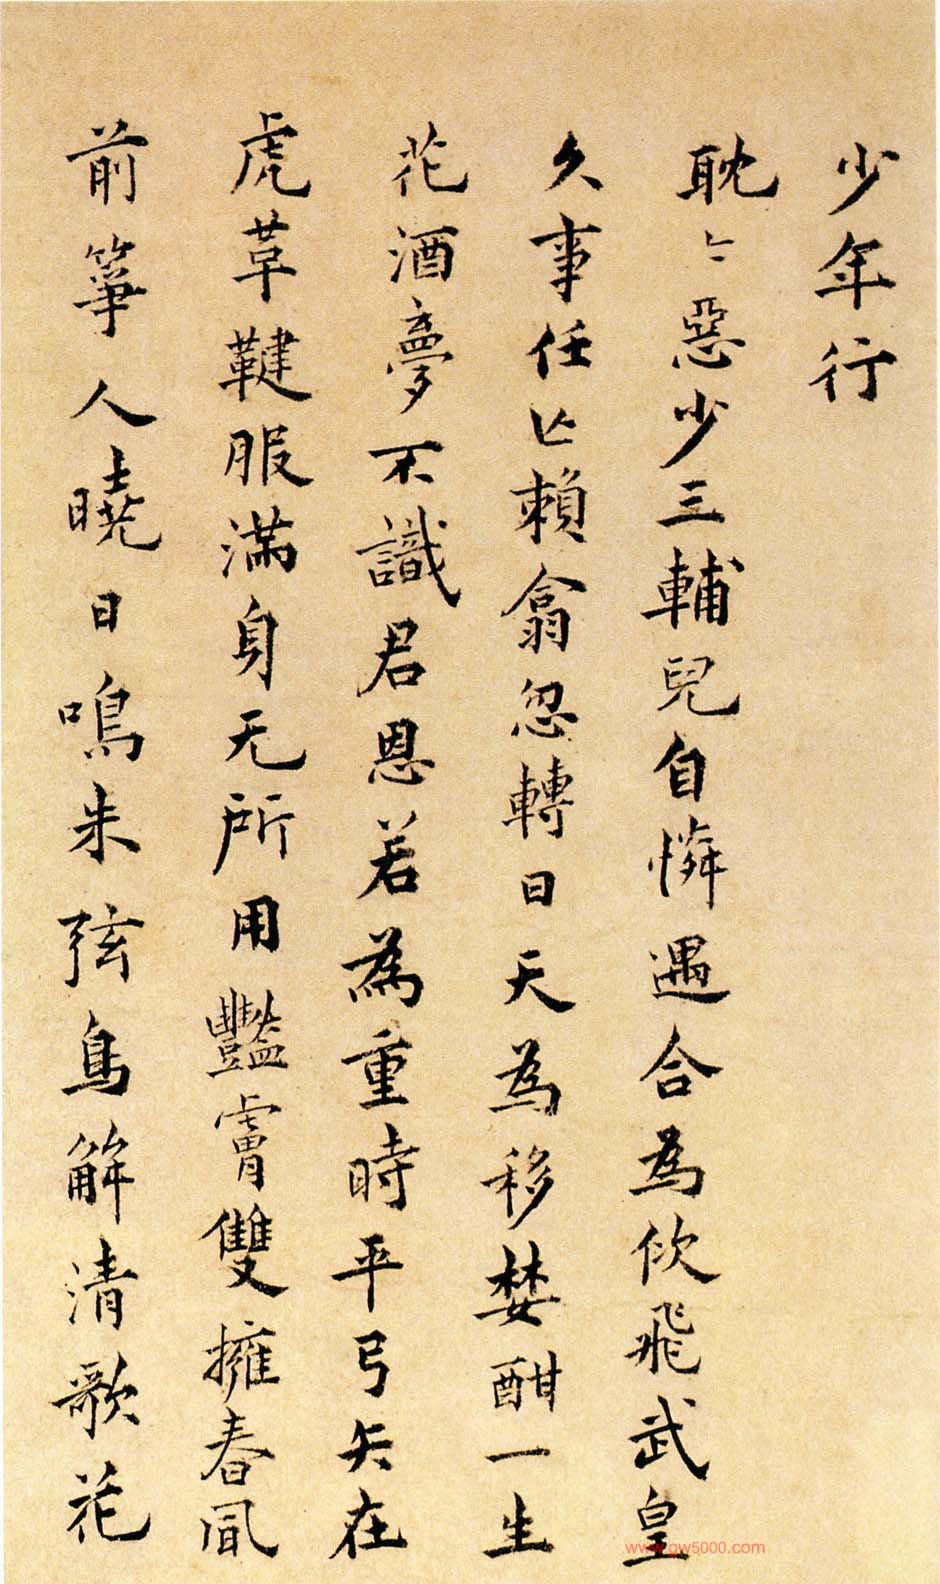 少年行
耽〻惡少三輔兒自憐遇合為佽飛武皇
久事任亾賴翕忽轉日天為移婪酣一生
花酒夢不識君恩若為重時平弓矢在
虎革鞬服滿身无所用豔膚雙擁春凬
前箏人曉日鳴朱弦鳥解清歌花
www.gw5000.com